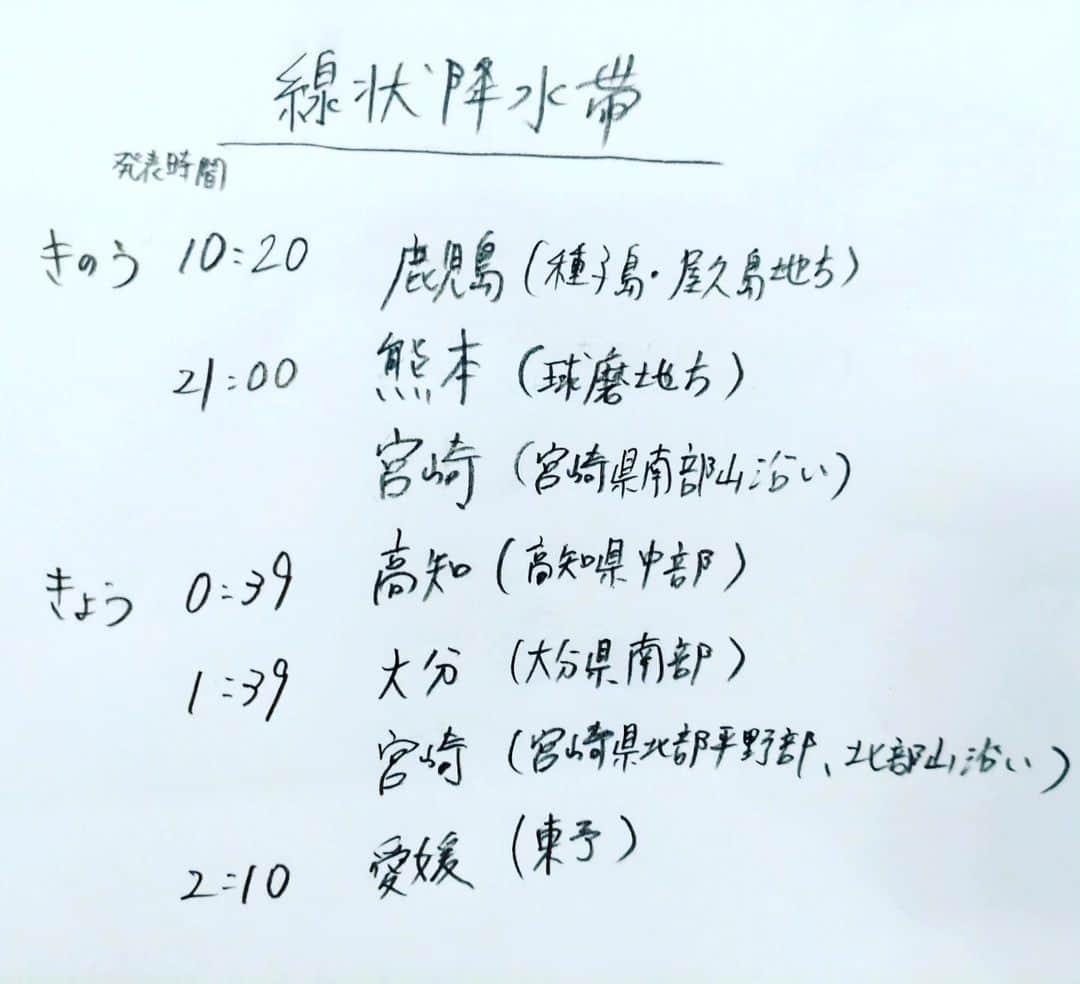 線状降水帯
発表時間
きのう 10:20 鹿児島(種子島・屋久島地方)
21:00 熊本(球磨地方)
宮崎(宮崎県南部山沿い)
きょう 0:39 高知(高知県中部)
1:39 大分(大分県南部)
宮崎(宮崎県北部平野部、北部山沿い)
2:10 愛媛(東予)